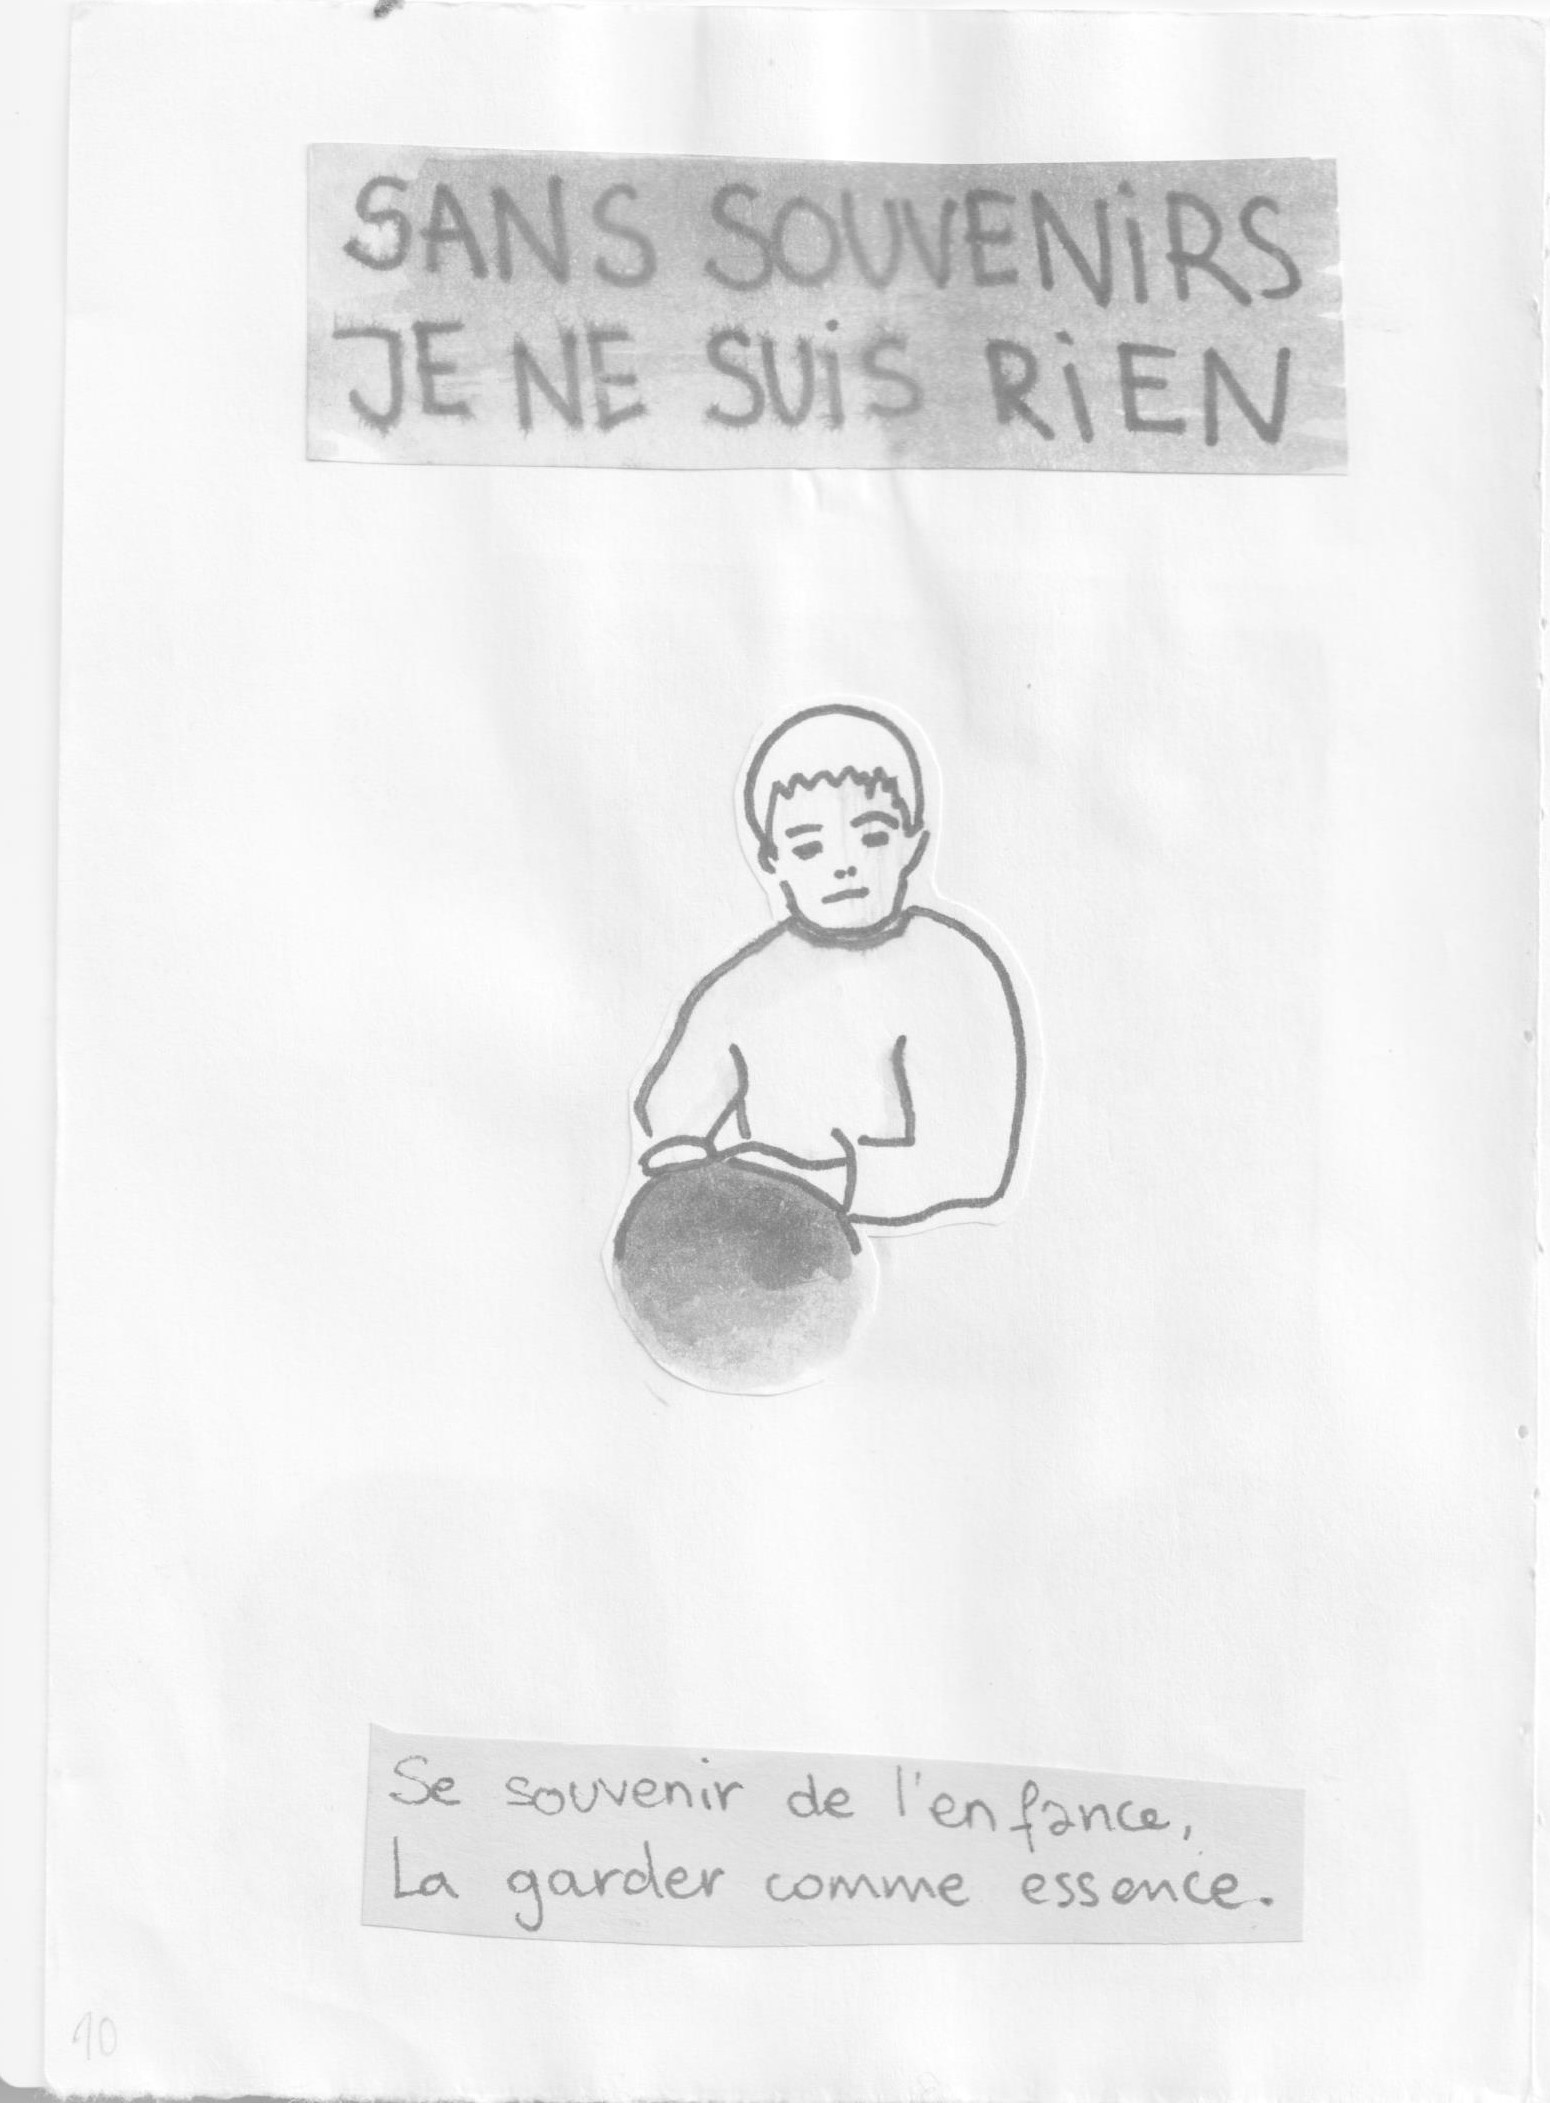 SANS SOUVENiRS
JE NE SUiS RiEN
Se souvenir de l'enfance,
La garder comme essence.
10